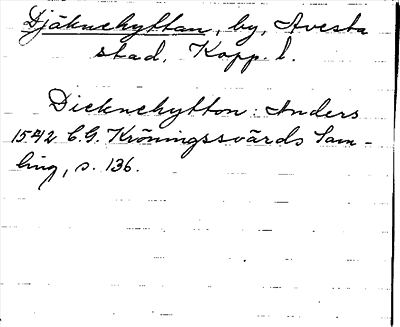 Djäknehyttan, by, Avesta
stad, Kopp. l.
Dieknehytton: Anders
1542 C.G. Kröningssvärds Sam-
ling, s. 136.